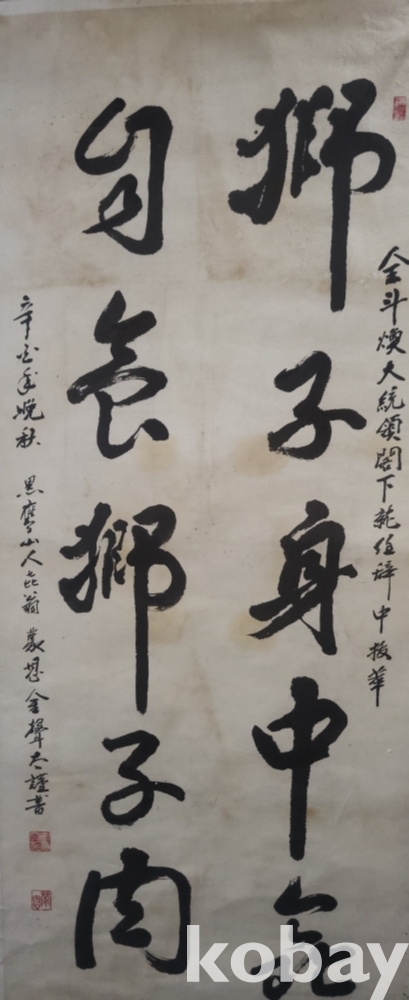 全斗煥大統領閣下就任辞中拔萃
獅子身中蟲
自食獅子肉
辛酉年晚秋 黑鷹山人 翁 蒙恩 金聲 謹書
kobay